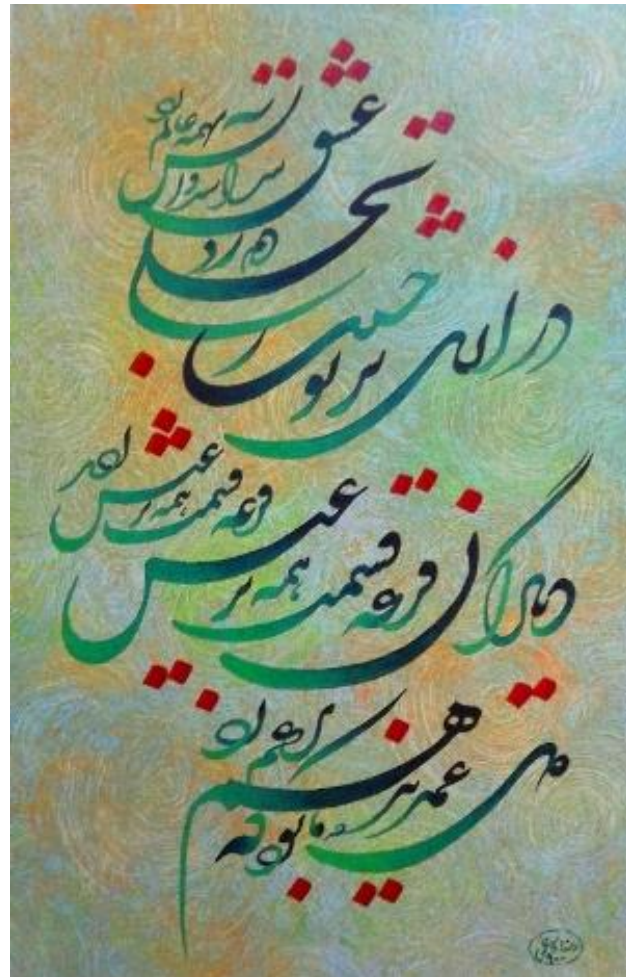 در ازل پرتو حسنت ز تجلی دم زد
عشق پیدا شد و آتش به همه عالم زد
دیگران قرعه قسمت همه بر عیش زدند
دل غمدیده ما بود که هم بر غم زد